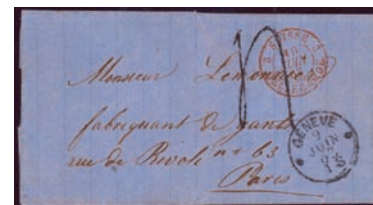 Monsieur Lemonnier
fabriquant de gants
rue de Rivoli no 63
Paris
SUISSE
GENÈVE
9
JUIN